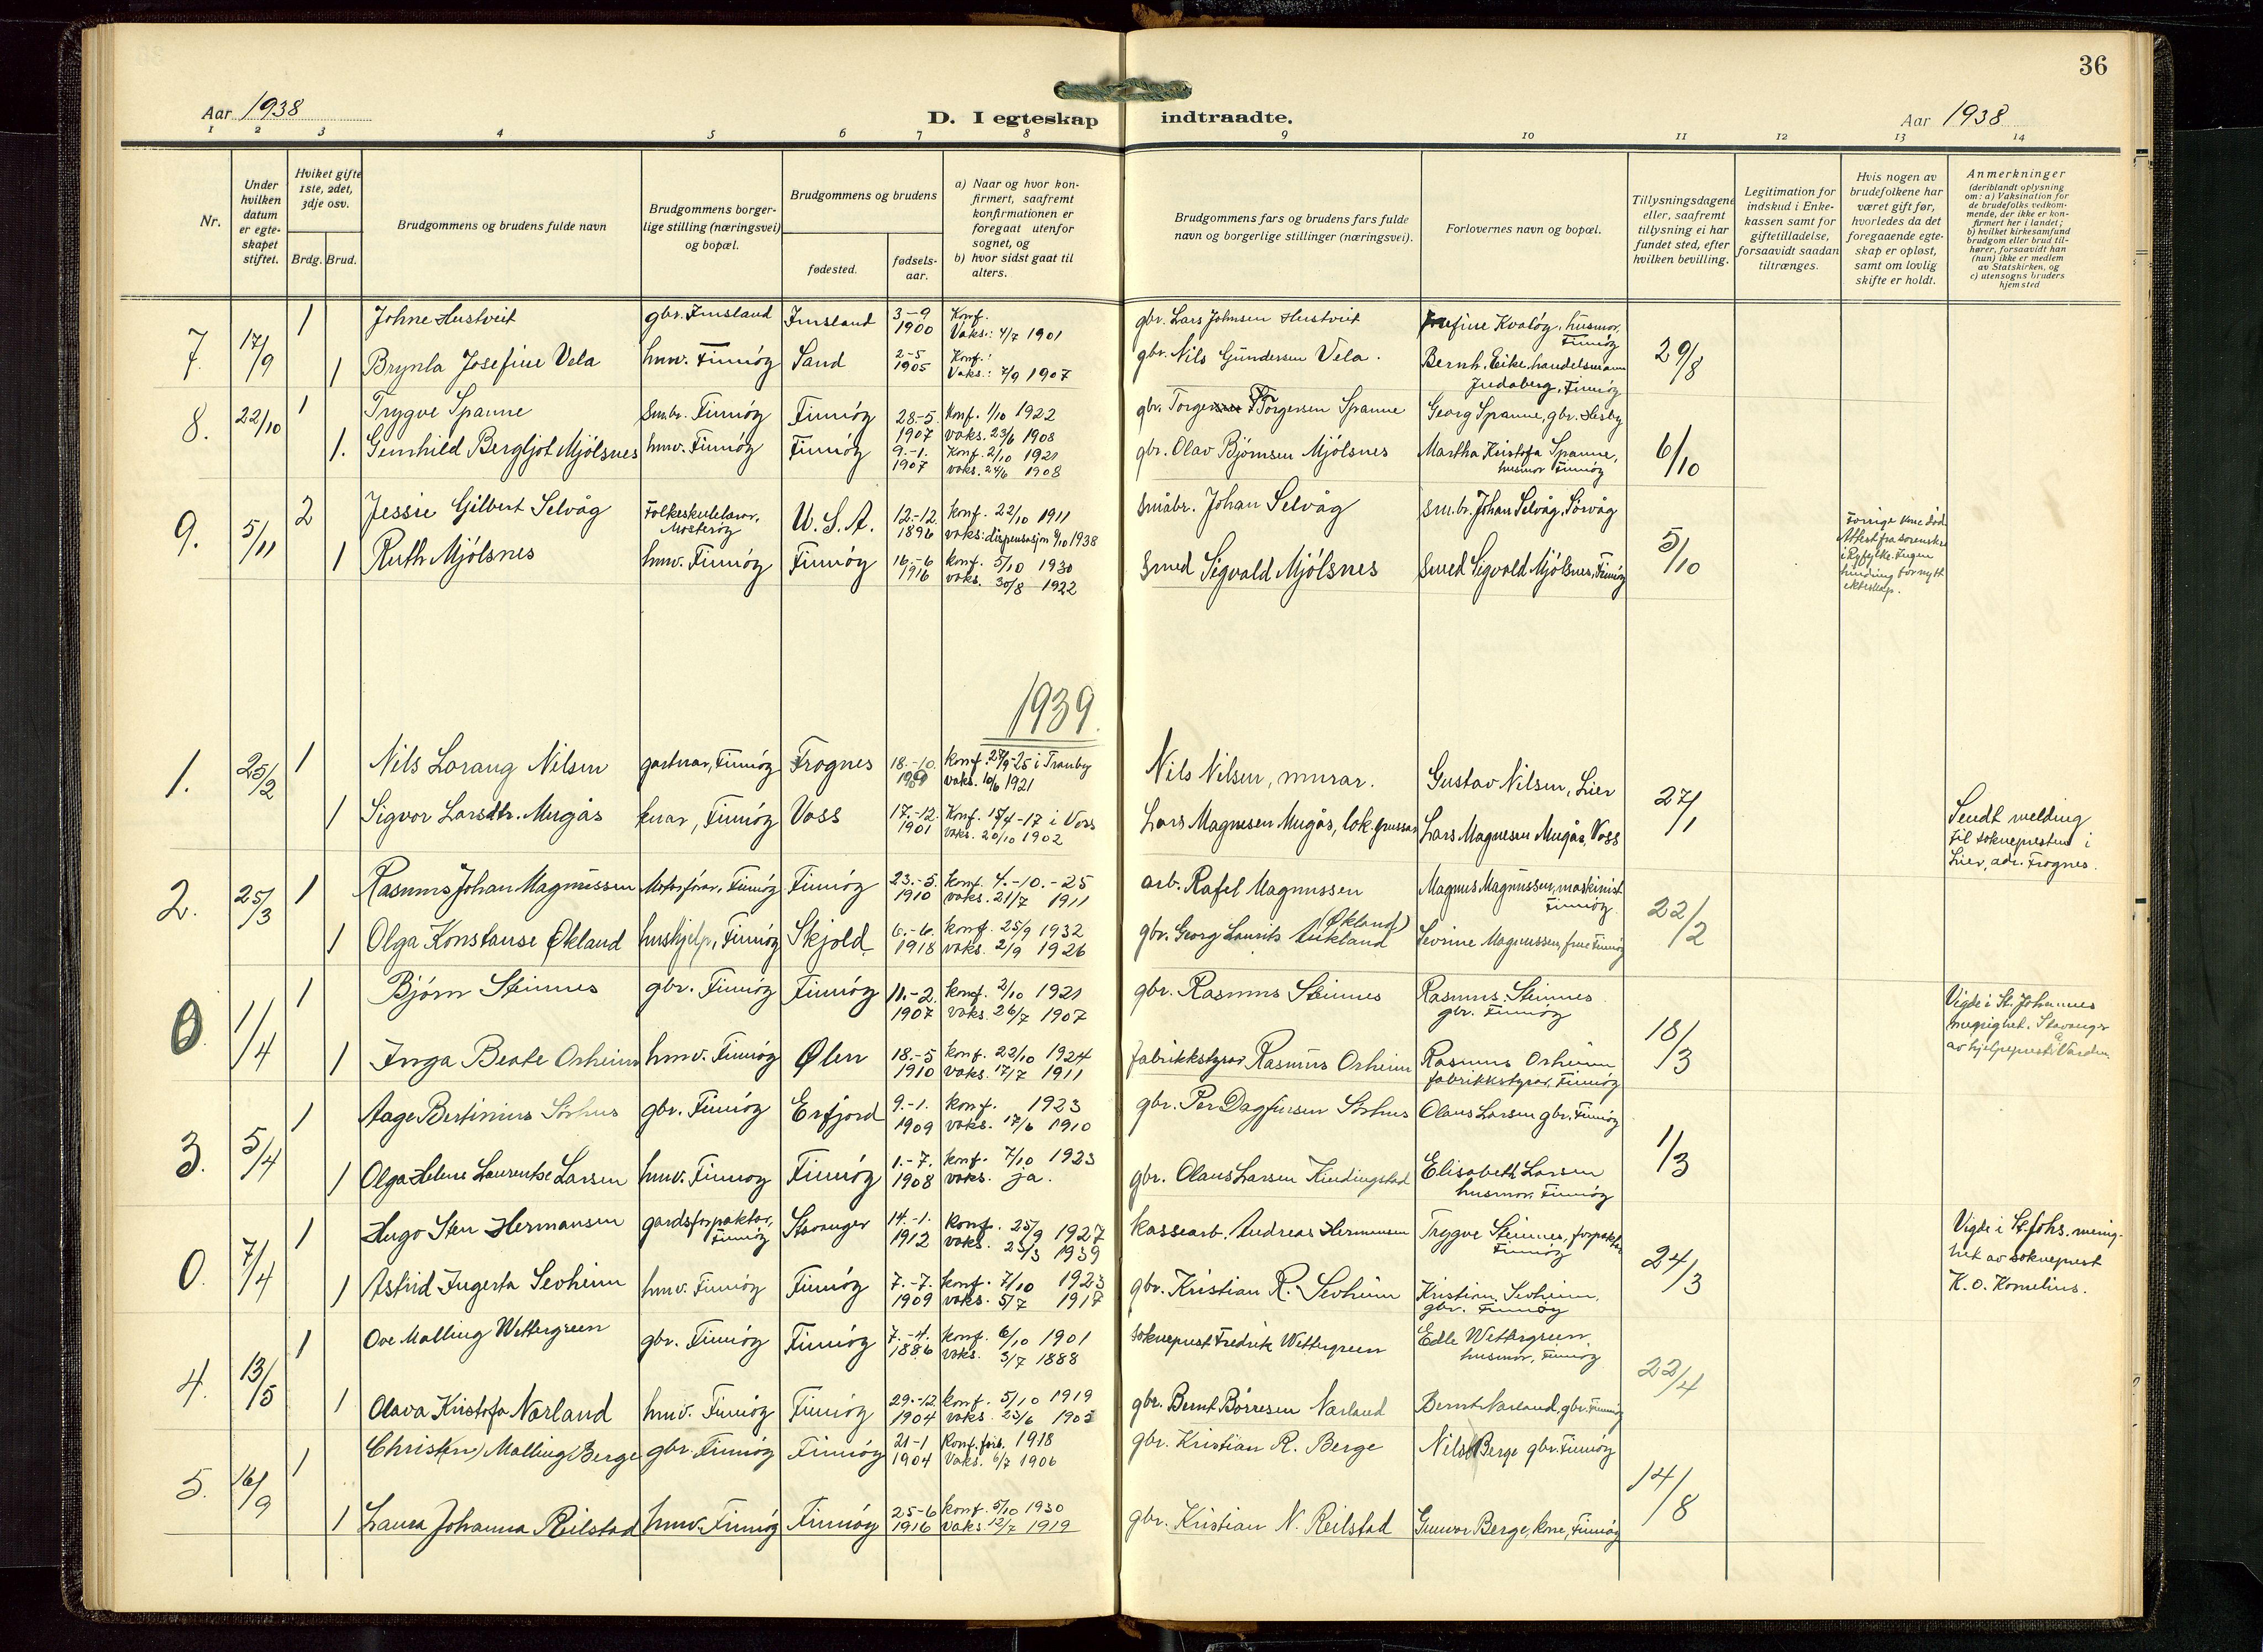 36
Aar 1938
D. I egteskap indtraadte.
Aar 1938
1 2 3 4 5 6 7 8 9 10 11 12 13 14
Nr.
Under hvilken datum er egteskapet stiftet.
Hviket gifte 1ste, 2det, 3dje osv.
Brdg. Brud.
Brudgommens og brudens fulde navn
Brudgommens borgerlige stilling (næringsvei) og bopæl.
Brudgommens og brudens
fødested.
fødselsaar.
a) Naar og hvor konfirmert, saafremt konfirmationen er foregaat utenfor sognet, og
b) hvor sidst gaat til alters.
Brudgommens fars og brudens fars fulde navn og borgerlige stillinger (næringsvei).
Forlovernes navn og bopæl.
Tillysningsdagene eller, saafremt tillysning ei har fundet sted, efter hvilken bevilling.
Legitimation for indskud i Enkekassen samt for giftetilladelse, forsaavidt saadan tiltrænges.
Hvis nogen av brudefolkene har været gift før, hvorledes da det foregaaende egteskap er opløst, samt om lovlig skifte er holdt.
Anmerkninger (deriblandt oplysning om: a) Vaksination for de brudefolks vedkommende, der ikke er konfirmert her i landet; b) hvilket kirkesamfund brudgom eller brud tilhører, forsaavidt han (hun) ikke er medlem av Statskirken, og c) utensogns bruders hjemsted
7. 17/9 1 Johne Hustveit gbr. Imsland Imsland 3-9 1900 Konf. Vaks: 4/7 1901 gbr. Lars Johnsen Hustveit Josefine Kvaløy, husmor, Finnøy 29/8
1 Brynla Josefine Vela hmv. Finnøy Sand 2-5 1905 Konf.: Vaks.: 7/9 1907 gbr. Nils Gundersen Vela. Bernh. Eike, handelsmann Judaberg, Finnøy
8. 22/10 1 Trygve Spanne Smbr. Finnøy Finnøy 28-5. 1907 konf. 1/10 1922 vaks. 23/6 1908 gbr. Torger Torgersen Spanne Georg Spanne, gbr. Hesby 6/10
1. Gunhild Bergljot Mjølsnes hmv. Finnøy Finnøy 9.-1. 1907 Konf. 2/10 1921 vaks. 24/6 1908 gbr. Olav Bjørnsen Mjølsnes Martha Kristofa Spanne, husmor Finnøy
9. 5/11 2 Jessie Gilbert Selvåg Folkeskulelærar, Mosterøy U.S.A. 12.-12. 1896 konf. 22/10 1911 vaks: dispensasjon 9/10 1938 Småbr. Johan Selvåg sm.br. Johan Selvåg, Sørvåg 5/10
Forrige kone død. Attest fra sorenskr. i Ryfylke. Ingen hindring for nytt ekteskap.
1 Ruth Mjølsnes hmv. Finnøy Finnøy 16.-6 1916 konf. 5/10 1930 vaks. 30/8 1922 Smed Sigvald Mjølsnes Smed Sigvald Mjølsnes, Finnøy
1939.
1. 25/2 1 Nils Lorang Nilsen gartnar, Finnøy Frognes 18.-10. 1909 konf. 27/9-25 i Tranby vaks. 10/6 1921 Nils Nilsen, murar. Gustav Nilsen, Lier 27/1
1 Sigvor Larsdtr. Mugås Finnøy Voss 17.-12. 1901 Konf. 15/4-17 i Voss vaks. 20/10 1902 Lars Magnesen Mugås, lok.pussar Lars Magnesen Mugås, Voss
Sendt melding til soknepresten i Lier, adr. Frognes.
2. 25/3 1 Rasmus Johan Magnussen Motorførar, Finnøy Finnøy 23.-5. 1910 konf. 4.-10.-25 vaks. 21/7 1911 arb. Rafel Magnussen Magnus Magnussen, maskinist Finnøy 22/2
1 Olga Konstanse Økland hushjelp, Finnøy Skjold 6.-6. 1918 konf. 25/9 1932 vaks. 2/9 1926 gbr. Georg Laurits Aukland (Økland) Sevrine Magnussen, frue Finnøy
0 1/4 1 Bjørn Steinnes gbr. Finnøy Finnøy 11.-2. 1907 konf. 2/10 1921 vaks. 26/7 1907 gbr. Rasmus Steinnes Rasmus Steinnes gbr. Finnøy 18/3
Vigde i St. Johannes menighet. Stavanger av hjelpeprest Varden.
1 Inga Beate Orheim hmv. Finnøy Ølen 18.-5 1910 konf. 22/10 1924 vaks. 17/7 1911 fabrikkstyrar Rasmus Orheim Rasmus Orheim fabrikkstyrar, Finnøy
3. 5/4 1 Aage Bertinius Sørhus gbr. Finnøy Erfjord 9.-1. 1909 konf. 1923 vaks. 17/6 1910 gbr. Per Dagfinsen Sørhus Olaus Larsen gbr. Finnøy 1/3
1 Olga Helene Laurentse Larsen hmv. Finnøy Finnøy 1.-7. 1908 konf. 7/10 1923 vaks. ja. gbr. Olaus Larsen Kindingstad Elisabeth Larsen husmor, Finnøy
0. 7/4 1 Hugo Sten Hermansen gardsforpaktar, Finnøy Stavanger 14.-1. 1912 konf. 25/9 1927 vaks. 23/3 1939 kassearb. Andreas Hermansen Trygve Steinnes, forpaktar Finnøy 24/3
Vigde i St. Johs. menighet av sokneprest K. O. Kornelius.
1 Astrid Ingerta Sevheim hmv. Finnøy Finnøy 7.-7. 1909 konf. 7/10 1923 vaks. 5/7 1917 gbr. Kristian R. Sevheim Kristian Sevheim, gbr. Finnøy
4. 13/5 1 Ove Malling Wettergreen gbr. Finnøy Finnøy 7.-4. 1886 konf. 6/10 1901 vaks. 3/7 1888 sokneprest Fredrik Wettergreen Edle Wettergreen husmor, Finnøy 22/4
1 Olava Kristofa Nørland hmv. Finnøy Finnøy 29.-12. 1904 konf. 5/10 1919 vaks. 23/6 1905 gbr. Bernt Børresen Nærland Bernt Nærland, gbr. Finnøy
5. 16/9 1 Christen) Malling Berge gbr. Finnøy Finnøy 21-1 1904 konf. 1918 Vaks. 6/7 1906 gbr. Kristian R. Berge Nils Berge gbr. Finnøy 14/8
1 Laura Johanna Reilstad hmv. Finnøy Finnøy 25-6 1916 konf. 5/10 1930 vaks. 12/7 1919 gbr. Kristian N. Reilstad Gunvor Berge, kone, Finnøy